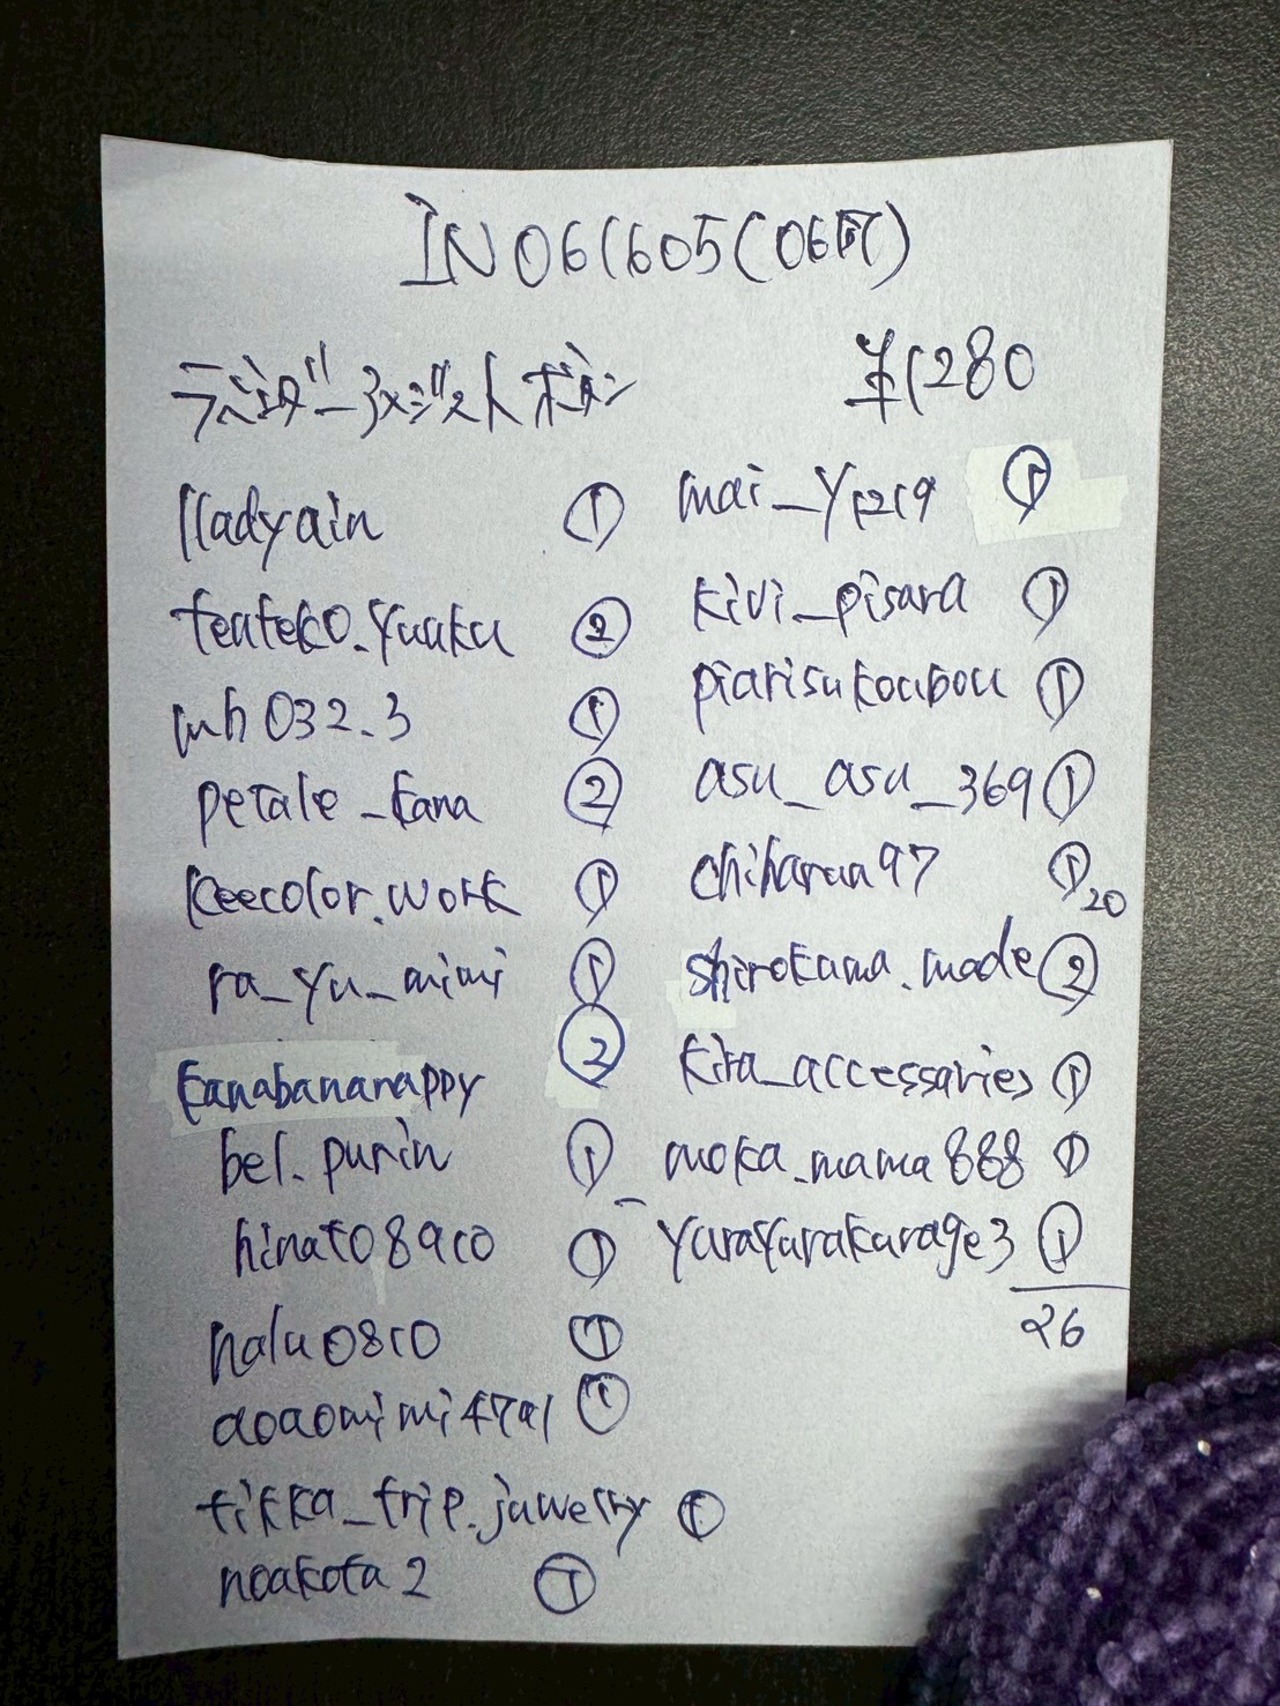 IN061605(06円)
ラベンダーアメジストボタン ¥1280
lladyain ①
teateko.yuaku ②
mh032.3 ①
petale_kana ②
keecolor.work ①
ra_yu_mimi ①
kanabananappy ②
bel.purin ①
hinato8910 ①
halu0810 ①
aoaomimi4791 ①
tikka_trip.juwelry ①
noakota2 ①
mai_y1219 ①
kivi_pisara ①
piarisukoubou ①
asu_asu_369 ①
chiharun97 ①20
shirokuma.made ②
kira_accessaries ①
moka_mama888 ①
yurayurakurage3 ①
26